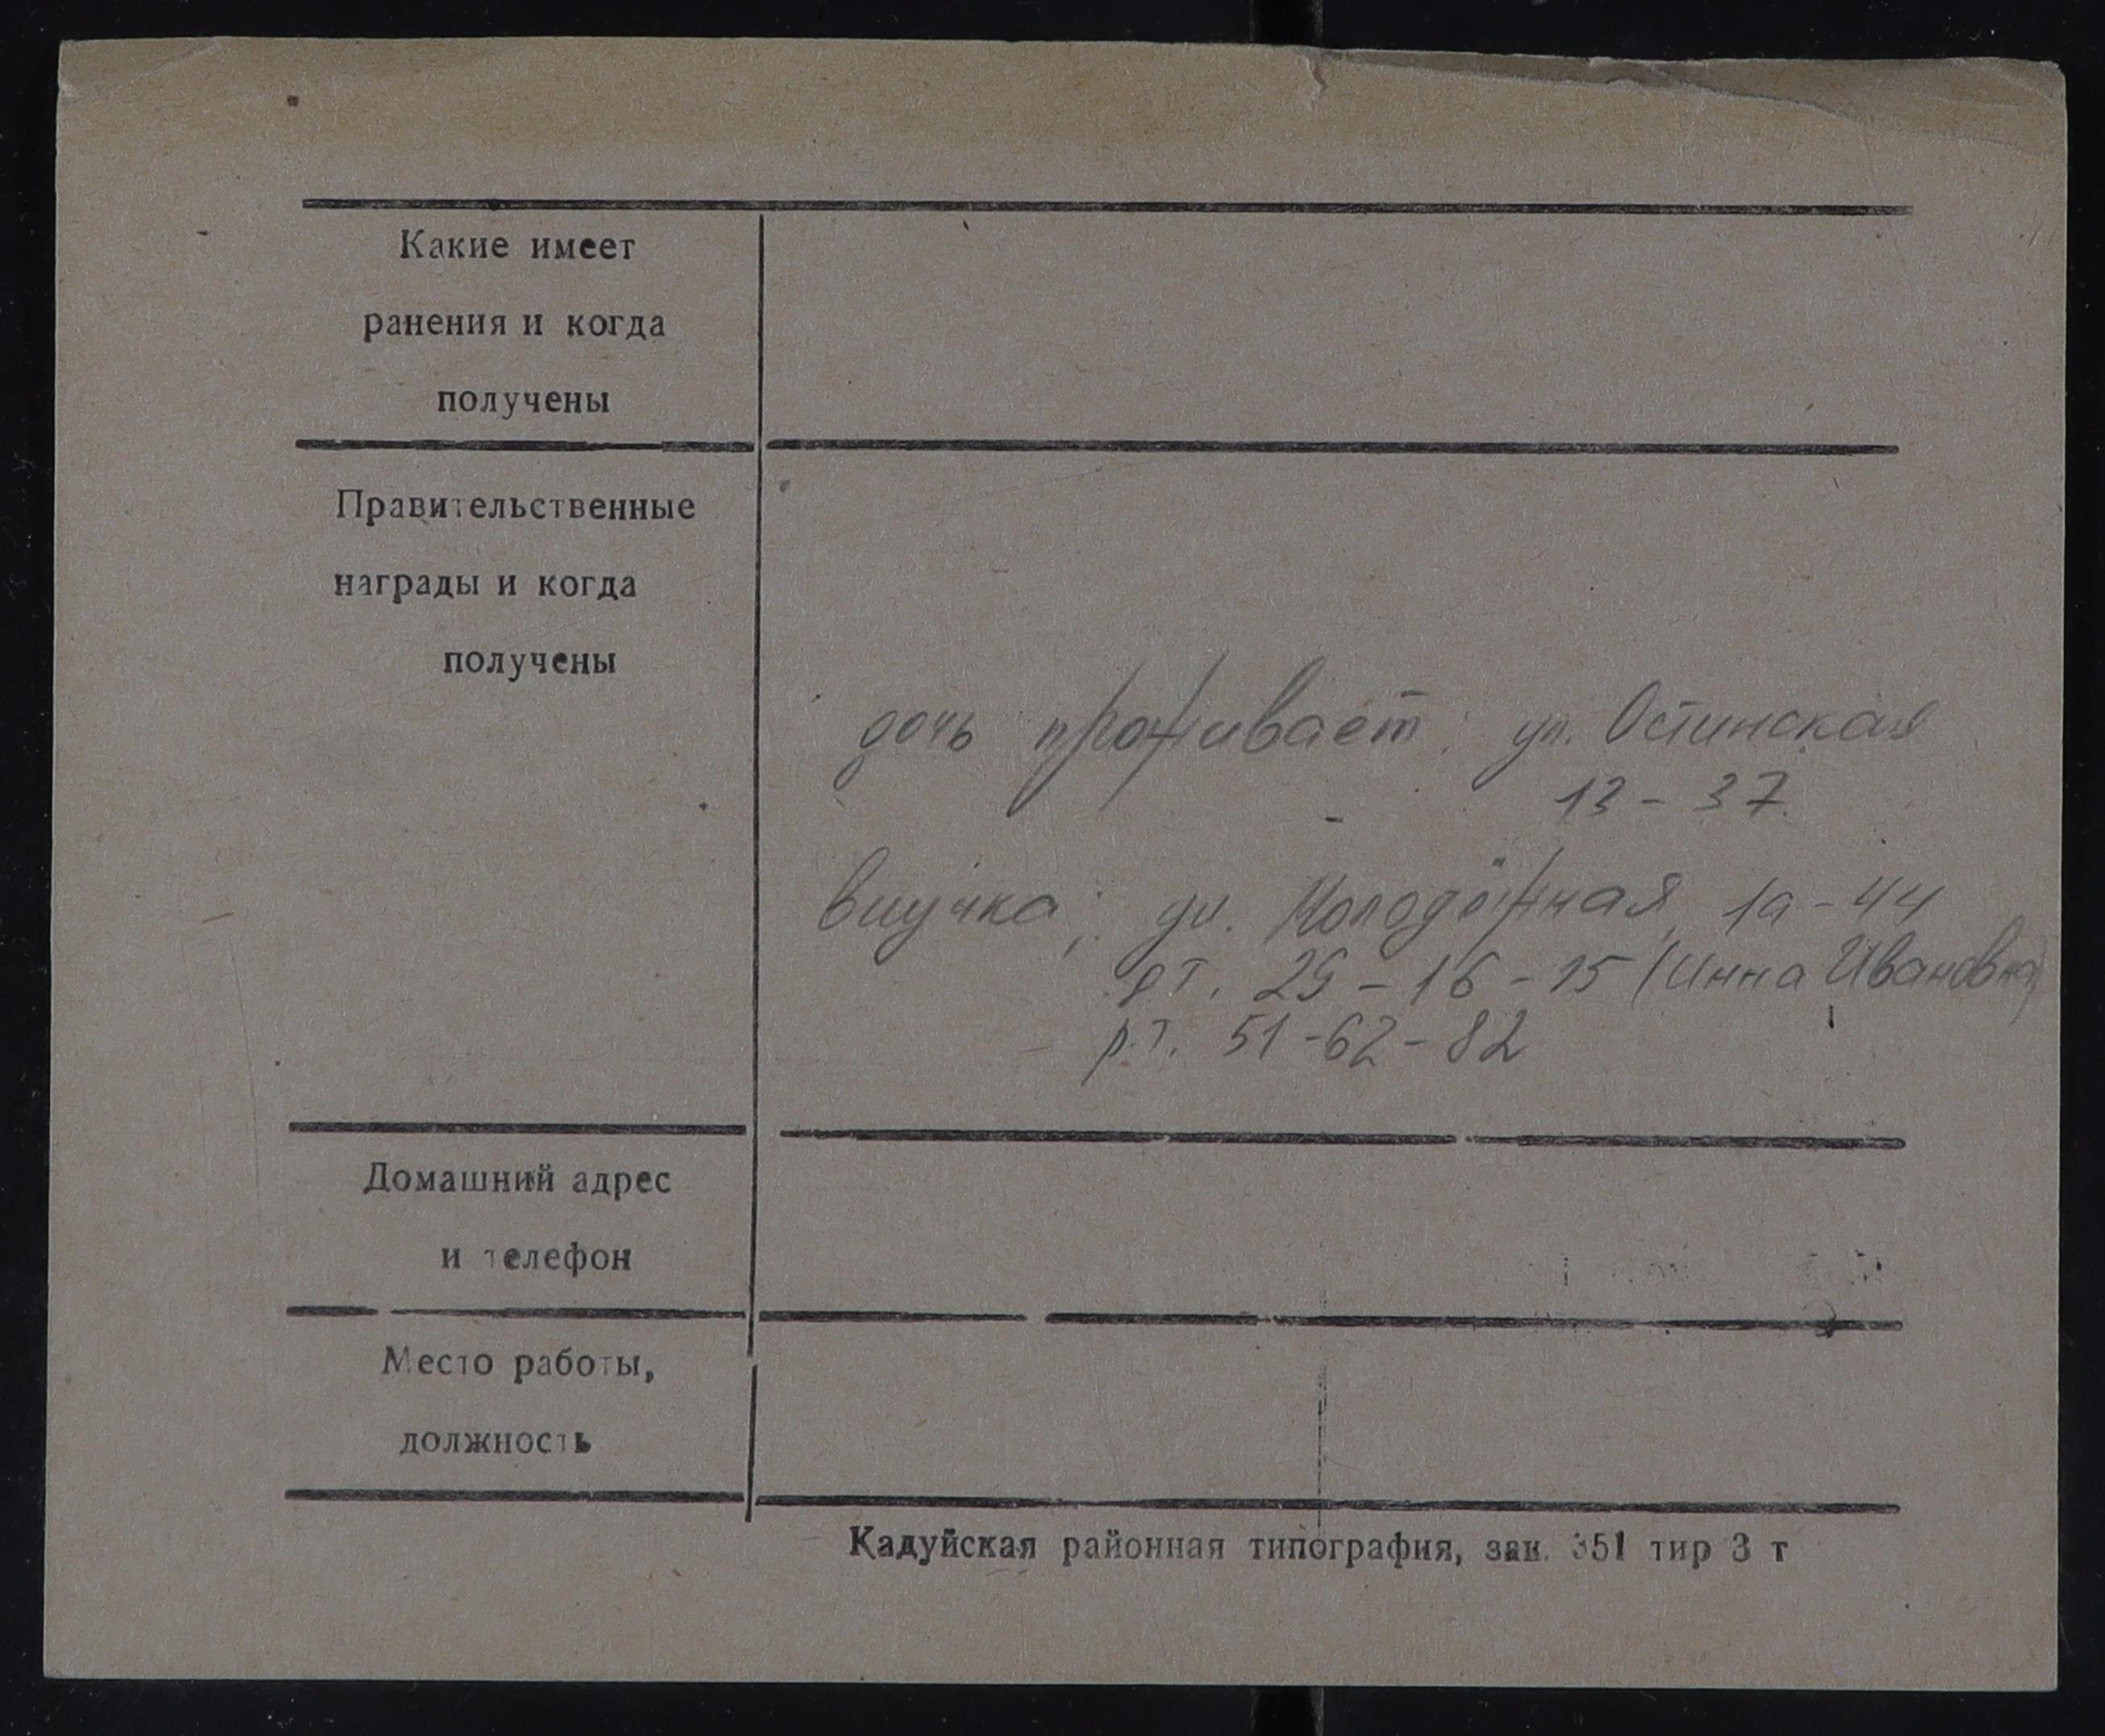 Какие имеет
ранения и когда
получены
Правительственные
награды и когда
получены
дочь проживает: ул. Остинская
13-37.
внучка: ул. Молодёжная, 1а-44
дт. 25-16-15 (Инна Ивановна)
р.т. 51-62-82
Домашний адрес
и телефон
Место работы,
должность
Кадуйская районная типография, зак. 351 тир 3 т